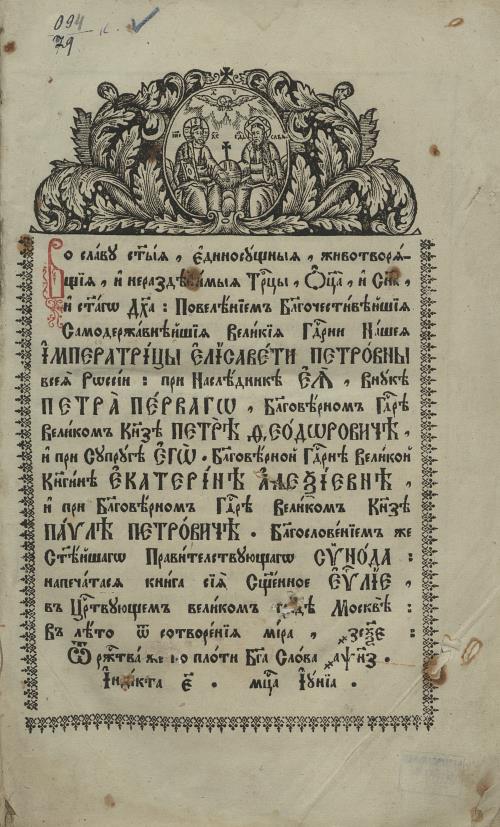 094
79
Во сла́ву ст҃ы́ѧ, є҆диносꙋ́щныѧ, животворѧ́-
щїѧ, и҆ нераздѣ́лимыѧ трⷪ҇цы, Ѻ҆ц҃а̀, и҆ Сн҃а,
и҆ ст҃а́гѡ Дх҃а: Повелѣ́нїемъ Бл҃гочести́вѣйшїѧ
Самодержа́внѣйшїѧ Вели́кїѧ Гдⷭ҇рни На́шеѧ
И҆МПЕРАТРИ́ЦЫ Є҆ЛІСАВЕ́ТИ ПЕТРО́ВНЫ
всеѧ̀ Рѡссі́и: при Наслѣ́дникѣ Є҆Ѧ̀, Внꙋ́кѣ
ПЕТРА̀ ПЕ́РВАГѠ, Бл҃говѣ́рномъ Гдⷭ҇рѣ
Вели́комъ Кн҃зѣ ПЕТРѢ̀ Ѳ҆ЕО́ДѠРОВИЧѢ,
и҆ при Сꙋпрꙋ́гѣ Є҆ГѠ̀. Бл҃говѣ́рной Гдⷭ҇рнѣ Вели́кой
Кн҃ги́нѣ Є҆КАТЕРІ́НѢ А҆ЛЕѮІ́ЕВНѢ,
и҆ при Бл҃говѣ́рномъ Гдⷭ҇рѣ Вели́комъ Кн҃зѣ
ПА́ѴЛѢ ПЕТРО́ВИЧѢ. Бл҃гослове́нїемъ же
Ст҃ѣ́йшагѡ Прави́телствꙋющагѡ СѴ̈НО́ДА:
напеча́тасѧ кни́га сїѧ̀ Сщ҃е́нное Є҆Ѵⷢ҇ЛІЕ,
въ Црⷭ҇твꙋющемъ вели́комъ гра́дѣ Москвѣ̀:
Въ лѣ́то ѿ сотворе́нїѧ мі́ра,
Ѿ ржⷭ҇тва̀ же по пло́ти Бг҃а Сло́ва ҂аѱн҃з.
І҆нді́кта є҃. мцⷭ҇а І҆ꙋ́нїа.